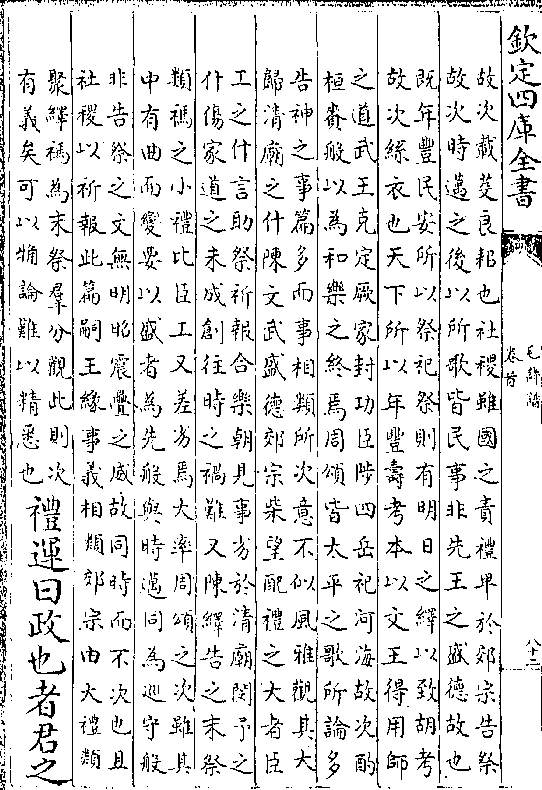 欽定四庫全書
毛詩譜
卷首
八十二
故次載芟良耜也社稷雖國之貴禮卑於郊宗告祭
故次時邁之後以所歌皆民事非先王之盛德故也
既年豐民安所以祭祀祭則有明日之繹以致胡考
故次絲衣也天下所以年豐壽考本以文王得用師
之道武王克定厥家封功臣陟四岳祀河海故次酌
桓賚般以為和樂之終焉周頌皆太平之歌所論多
告神之事篇多而事相類所次意不似風雅觀其大
歸清廟之什陳文武盛德郊宗柴望配禮之大者臣
工之什言助祭祈報合樂朝見事劣於清廟閔予之
什傷家道之未成創往時之禍難又陳繹告之末祭
類禡之小禮比臣工又差劣焉大率周頌之次雖其
中有曲而變要以盛者為先般與時邁同為巡守般
非告祭之文無明昭震疊之威故同時而不次也且
社稷以祈報此篇嗣王緣事義相類郊宗由大禮類
聚繹禡為末祭羣分觀此則次
有義矣可以觕論難以精悉也
禮運曰政也者君之